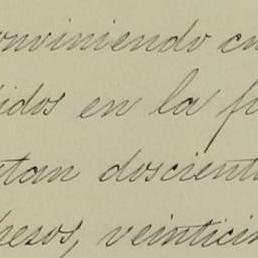 onviniendo en
idos en la f
tan doscient
pesos, veintici